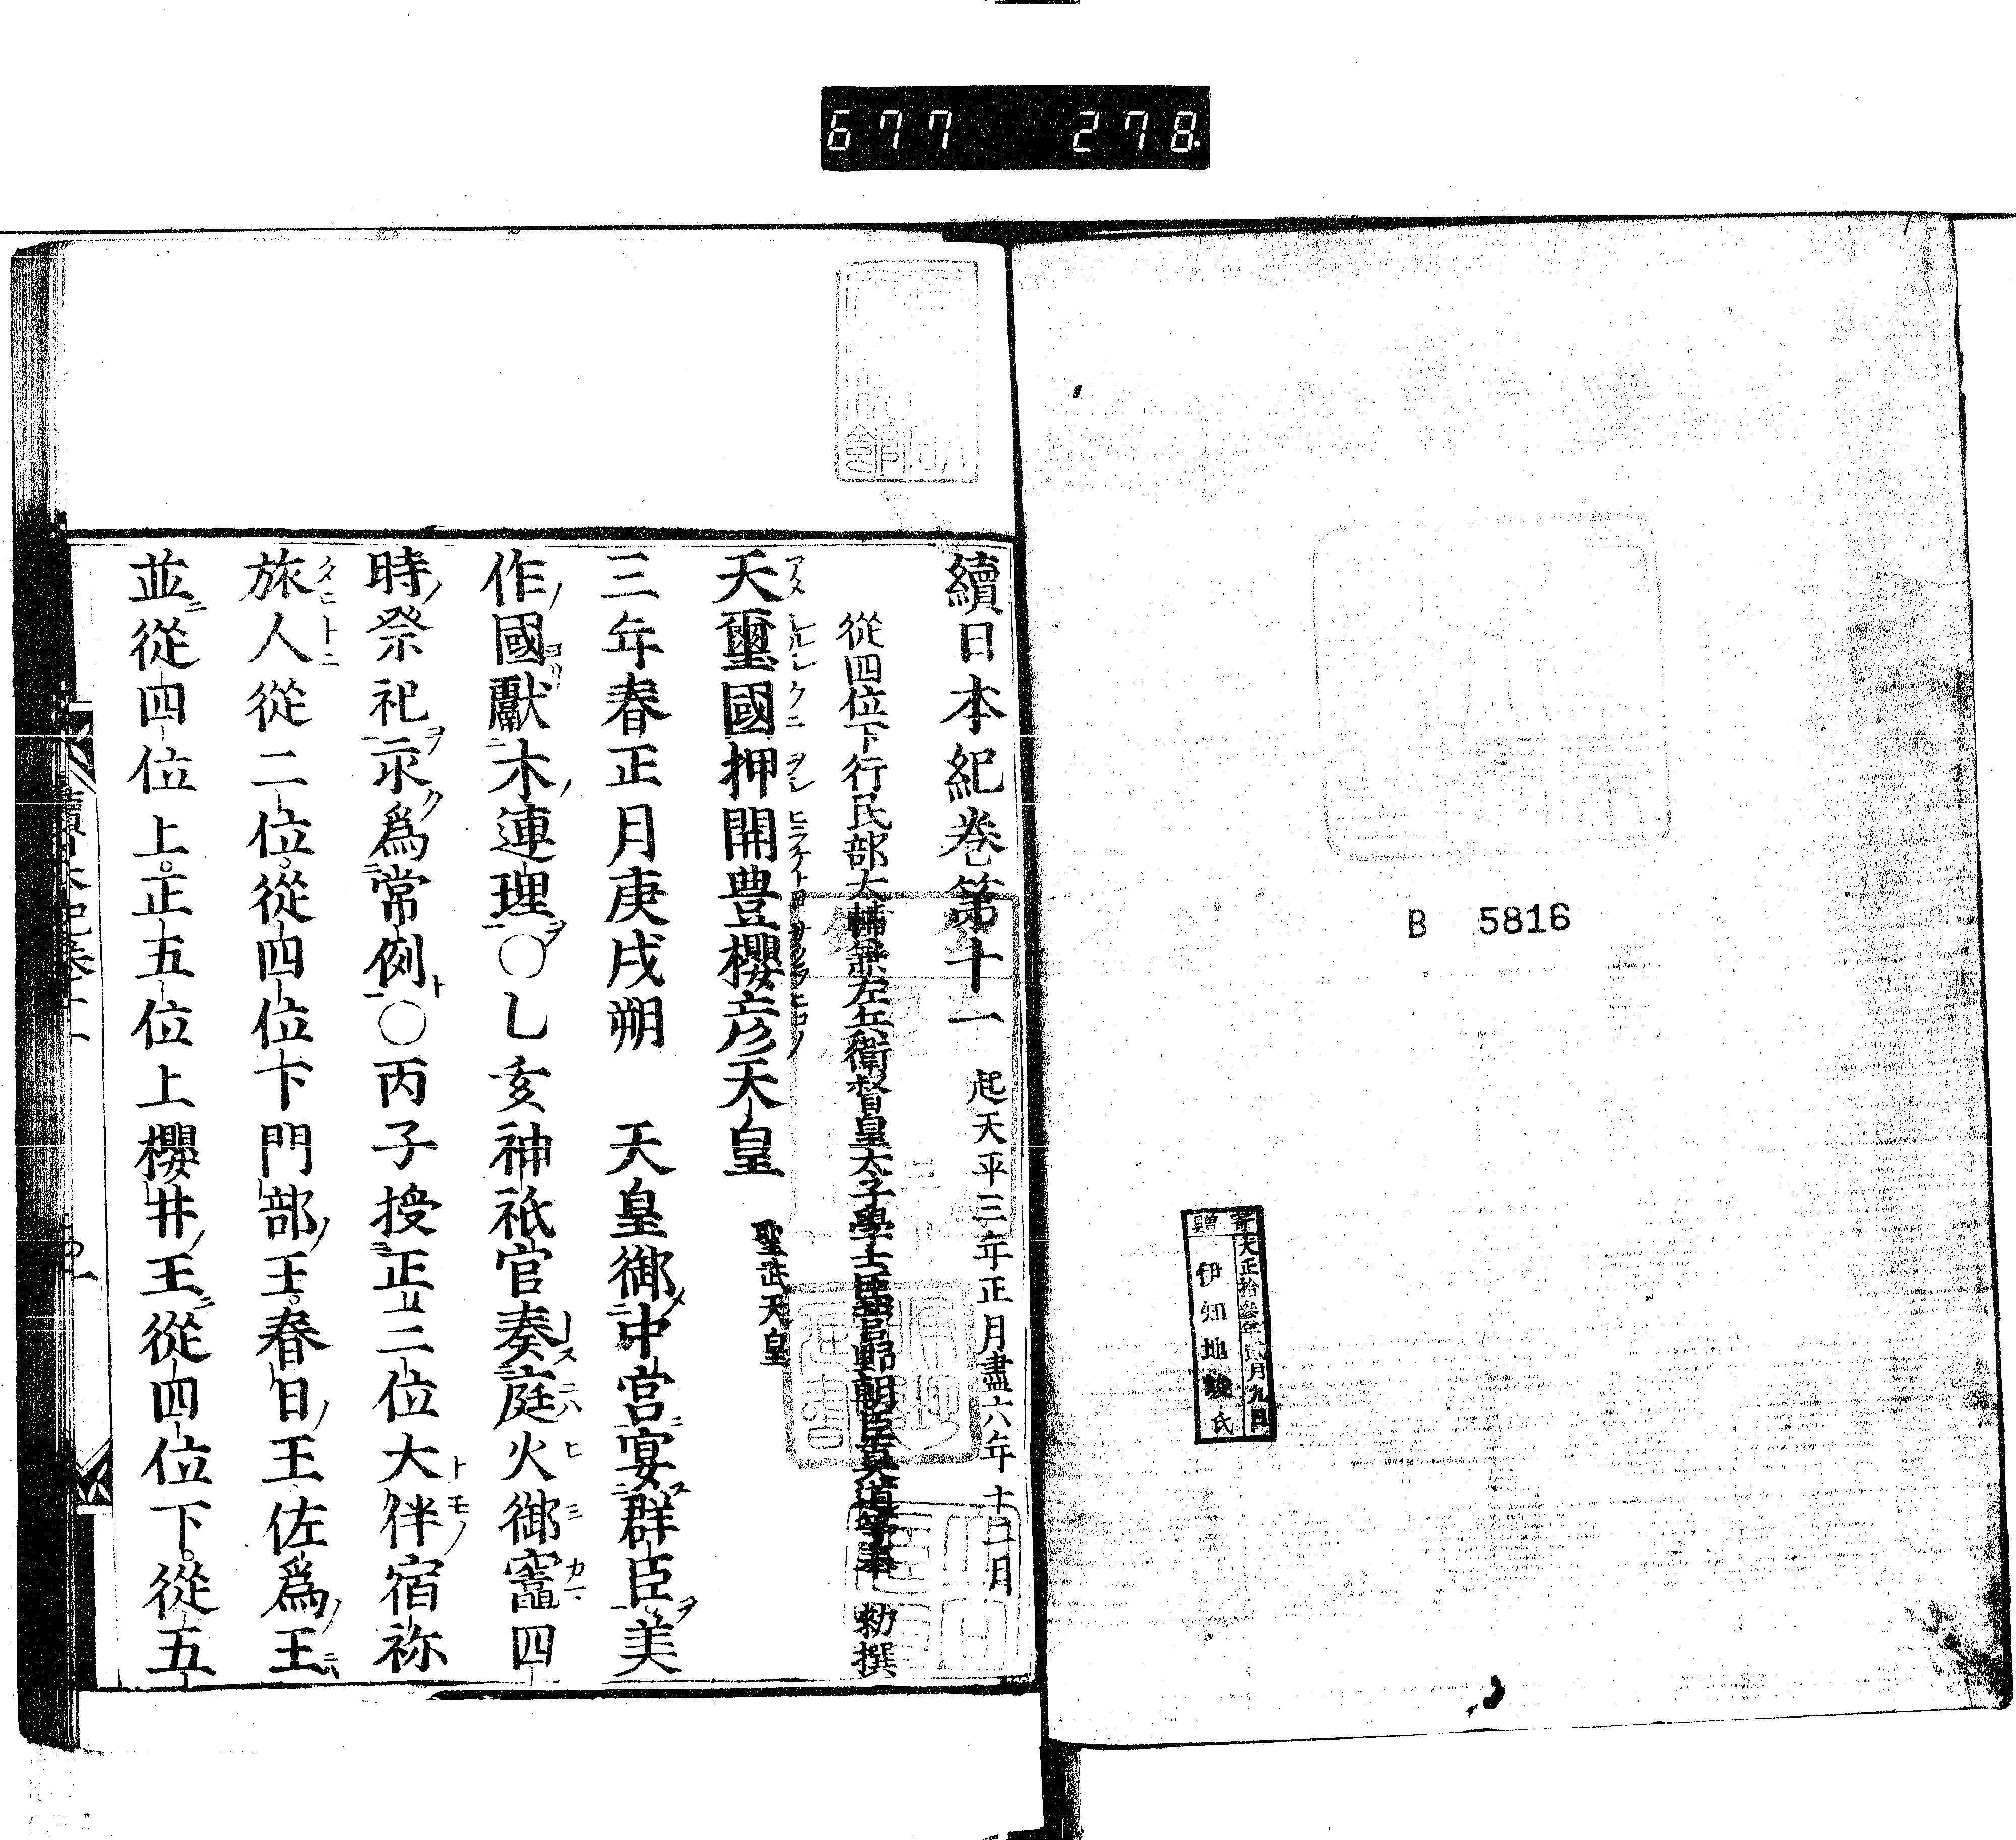 677 278
B 5816
寄贈
大正拾參年貳月九日
伊知地駿氏
續日本紀卷第十一 起天平三年正月盡六年十二月
從四位下行民部大輔兼左兵衛督皇太子學士臣菅野朝臣眞道等奉 勅撰
天璽國押開豊櫻彦天皇 聖武天皇
三年春正月庚戌朔 天皇御中宮宴群臣美
作國獻木連理○乙亥神祇官奏庭火御竈四
時祭祀永爲常例○丙子授正三位大伴宿祢
旅人從二位從四位下門部王春日王佐爲王
並從四位上正五位上櫻井王從四位下從五